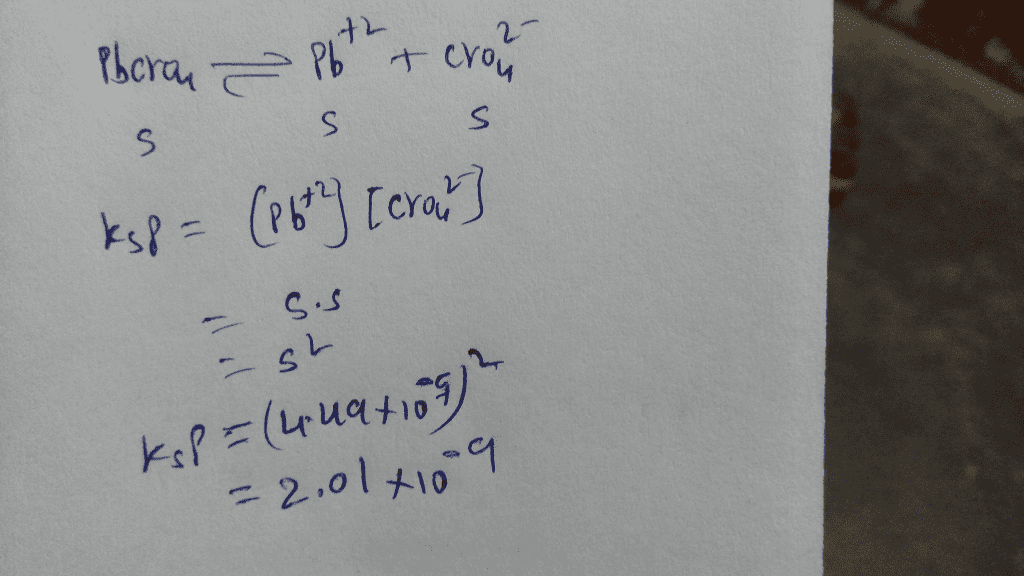 Pbcro4 ⇌ Pb+2 + cro4 2-
S S S
Ksp = (Pb+2] [cro4 2-]
= S.S
= S2
Ksp = (4.49+10-5)2
= 2.01 +10-9